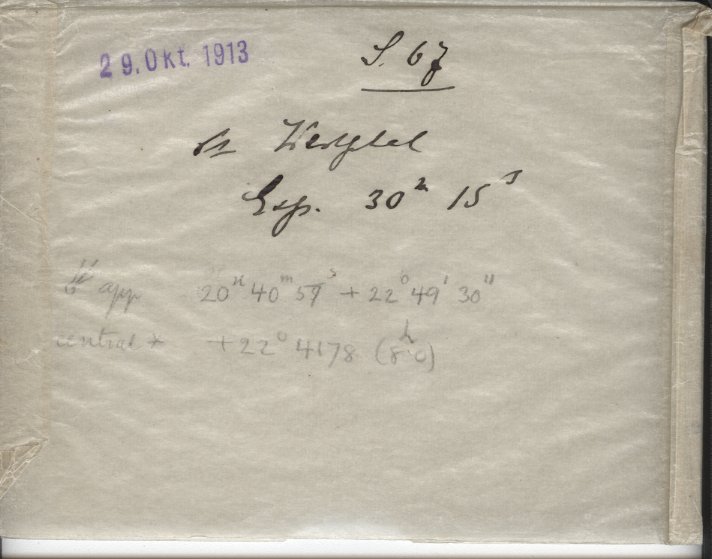 29. Okt. 1913
S. 67
Exp. 30ᵐ 15ˢ
app 20ʰ 40ᵐ 59ˢ + 22° 49' 30"
central * +22° 4178 (8ʰ.0)